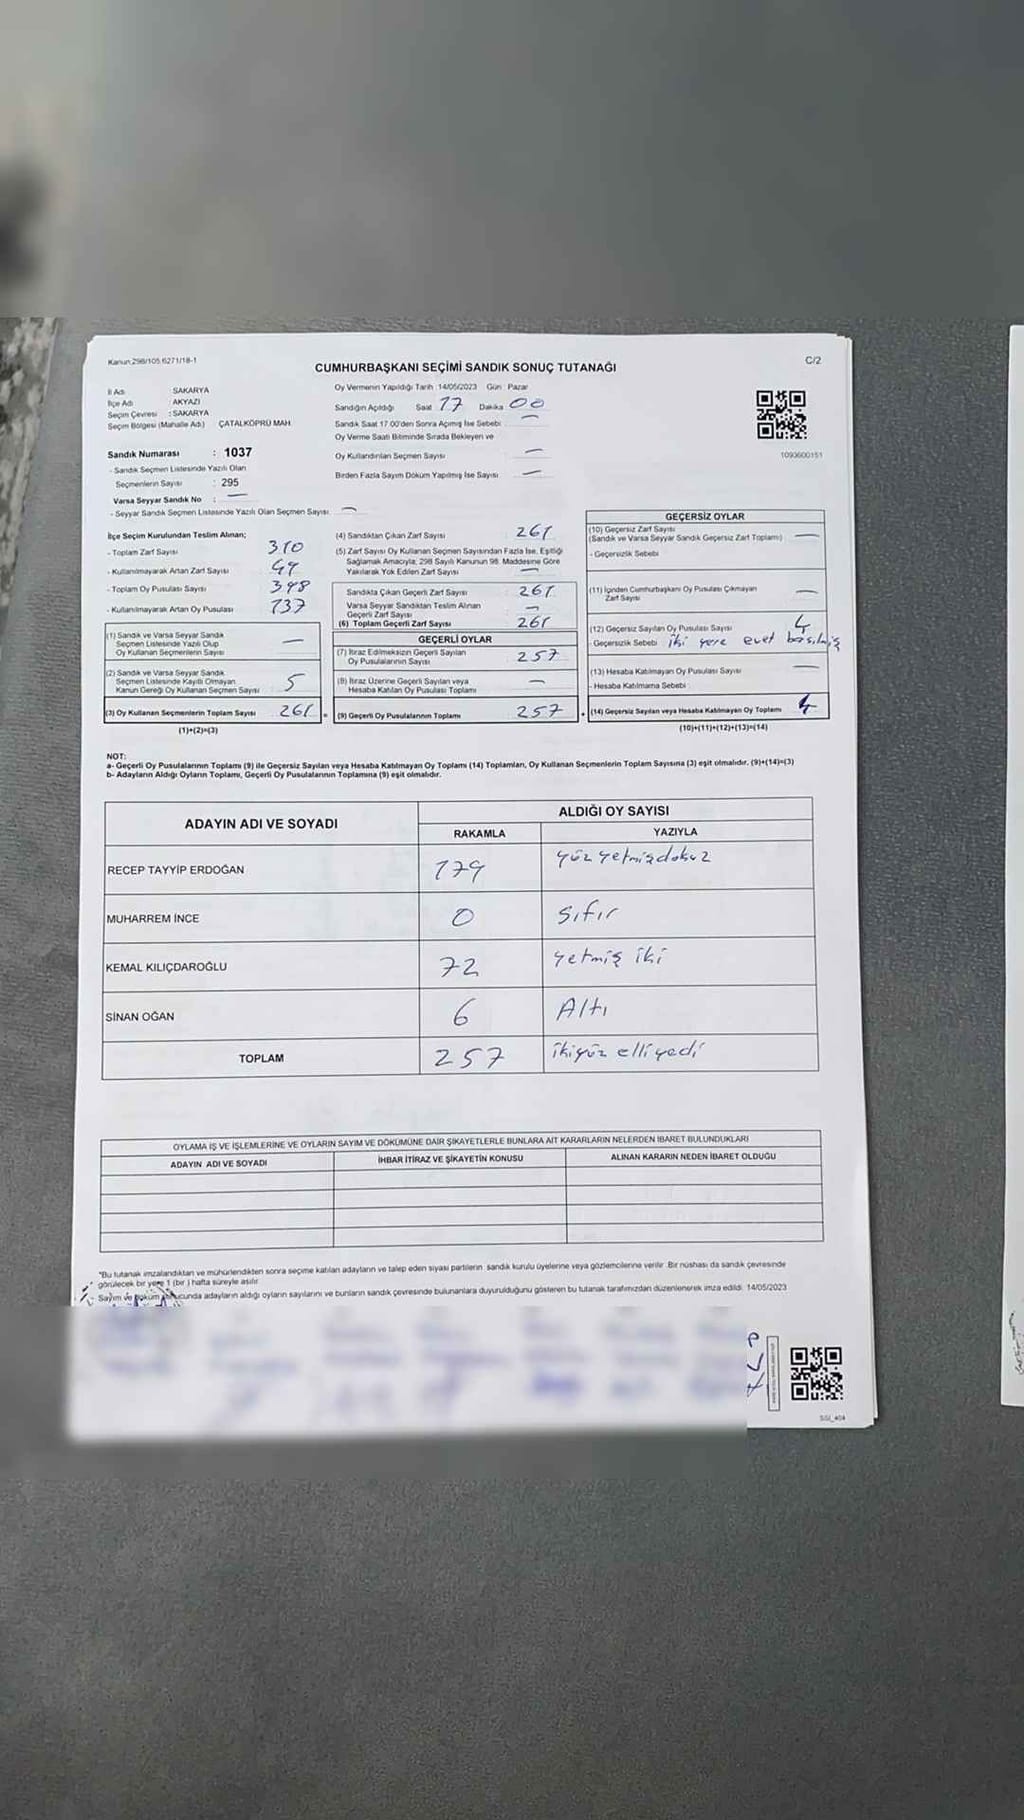 Kanun:298/105,6271/18-1
C/2
CUMHURBAŞKANI SEÇİMİ SANDIK SONUÇ TUTANAĞI
İl Adı SAKARYA
İlçe Adı : AKYAZI
Seçim Çevresi : SAKARYA
Seçim Bölgesi (Mahalle Adı) ÇATALKÖPRÜ MAH.
Sandık Numarası : 1037
- Sandık Seçmen Listesinde Yazılı Olan
Seçmenlerin Sayısı : 295
Varsa Seyyar Sandık No : —
- Seyyar Sandık Seçmen Listesinde Yazılı Olan Seçmen Sayısı: —
Oy Vermenin Yapıldığı Tarih :14/05/2023 Gün : Pazar
Sandığın Açıldığı Saat 17 Dakika 00
Sandık Saat 17.00'den Sonra Açılmış İse Sebebi : —
Oy Verme Saati Bitiminde Sırada Bekleyen ve
Oy Kullandırılan Seçmen Sayısı —
Birden Fazla Sayım Döküm Yapılmış İse Sayısı —
1093600151
İlçe Seçim Kurulundan Teslim Alınan;
- Toplam Zarf Sayısı 310
- Kullanılmayarak Artan Zarf Sayısı 49
- Toplam Oy Pusulası Sayısı 398
- Kullanılmayarak Artan Oy Pusulası 137
(1) Sandık ve Varsa Seyyar Sandık
Seçmen Listesinde Yazılı Olup
Oy Kullanan Seçmenlerin Sayısı —
(2) Sandık ve Varsa Seyyar Sandık
Seçmen Listesinde Kayıtlı Olmayan
Kanun Gereği Oy Kullanan Seçmen Sayısı 5
(3) Oy Kullanan Seçmenlerin Toplam Sayısı 261
(1)+(2)=(3)
(4) Sandıktan Çıkan Zarf Sayısı 261
(5) Zarf Sayısı Oy Kullanan Seçmen Sayısından Fazla İse, Eşitliği
Sağlamak Amacıyla; 298 Sayılı Kanunun 98. Maddesine Göre
Yakılarak Yok Edilen Zarf Sayısı —
Sandıkta Çıkan Geçerli Zarf Sayısı 261
Varsa Seyyar Sandıktan Teslim Alınan
Geçerli Zarf Sayısı —
(6) Toplam Geçerli Zarf Sayısı 261
GEÇERLİ OYLAR
(7) İtiraz Edilmeksizin Geçerli Sayılan
Oy Pusulalarının Sayısı 257
(8) İtiraz Üzerine Geçerli Sayılan veya
Hesaba Katılan Oy Pusulası Toplamı —
= (9) Geçerli Oy Pusulalarının Toplamı 257
GEÇERSİZ OYLAR
(10) Geçersiz Zarf Sayısı
(Sandık ve Varsa Seyyar Sandık Geçersiz Zarf Toplamı) —
- Geçersizlik Sebebi
(11) İçinden Cumhurbaşkanı Oy Pusulası Çıkmayan
Zarf Sayısı —
(12) Geçersiz Sayılan Oy Pusulası Sayısı 4
- Geçersizlik Sebebi iki yere evet basılmış
(13) Hesaba Katılmayan Oy Pusulası Sayısı —
- Hesaba Katılmama Sebebi
+ (14) Geçersiz Sayılan veya Hesaba Katılmayan Oy Toplamı 4
(10)+(11)+(12)+(13)=(14)
NOT:
a- Geçerli Oy Pusulalarının Toplamı (9) ile Geçersiz Sayılan veya Hesaba Katılmayan Oy Toplamı (14) Toplamları, Oy Kullanan Seçmenlerin Toplam Sayısına (3) eşit olmalıdır. (9)+(14)=(3)
b- Adayların Aldığı Oyların Toplamı, Geçerli Oy Pusulalarının Toplamına (9) eşit olmalıdır.
ADAYIN ADI VE SOYADI
ALDIĞI OY SAYISI
RAKAMLA YAZIYLA
RECEP TAYYİP ERDOĞAN 179 yüz yetmişdokuz
MUHARREM İNCE 0 Sıfır
KEMAL KILIÇDAROĞLU 72 yetmiş iki
SİNAN OĞAN 6 Altı
TOPLAM 257 ikiyüz elli yedi
OYLAMA İŞ VE İŞLEMLERİNE VE OYLARIN SAYIM VE DÖKÜMÜNE DAİR ŞİKAYETLERLE BUNLARA AİT KARARLARIN NELERDEN İBARET BULUNDUKLARI
ADAYIN ADI VE SOYADI İHBAR İTİRAZ VE ŞİKAYETİN KONUSU ALINAN KARARIN NEDEN İBARET OLDUĞU
*Bu tutanak imzalandıktan ve mühürlendikten sonra seçime katılan adayların ve talep eden siyasi partilerin sandık kurulu üyelerine veya gözlemcilerine verilir. Bir nüshası da sandık çevresinde
görülecek bir yere 1 (bir ) hafta süreyle asılır.
Sayım ve döküm sonucunda adayların aldığı oyların sayılarını ve bunların sandık çevresinde bulunanlara duyurulduğunu gösteren bu tutanak tarafımızdan düzenlenerek imza edildi. 14/05/2023
SGL_404